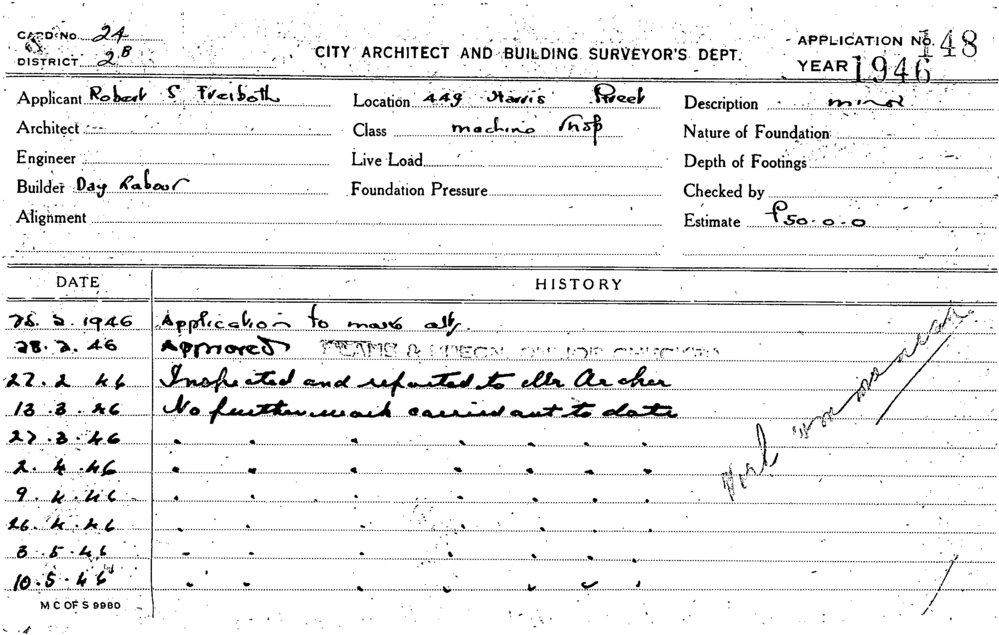 CARD No. 24
DISTRICT 2B
CITY ARCHITECT AND BUILDING SURVEYOR'S DEPT.
APPLICATION No. 148
YEAR 1946
Applicant Robert S Freiboth
Location 449 Harris Street
Description minor
Architect
Class machine shop
Nature of Foundation
Engineer
Live Load
Depth of Footings
Builder Day Labour
Foundation Pressure
Checked by
Alignment
Estimate £50.0.0
DATE HISTORY
25.2.1946 Application to make
28.2.46 Approved BEAMS & ON JOB CHECKED
27.2 46 Inspected and reported to Mr Archer
13.3.46 No further work carried out to date
27.3.46 " " " " " " "
2.4.46 " " " " " " "
9.4.46 " " " " " " "
26.4.46 " " " " " "
3.5.46 " " " " " "
10.5.46 " " " " " " "
Vork
M C OF S 9980